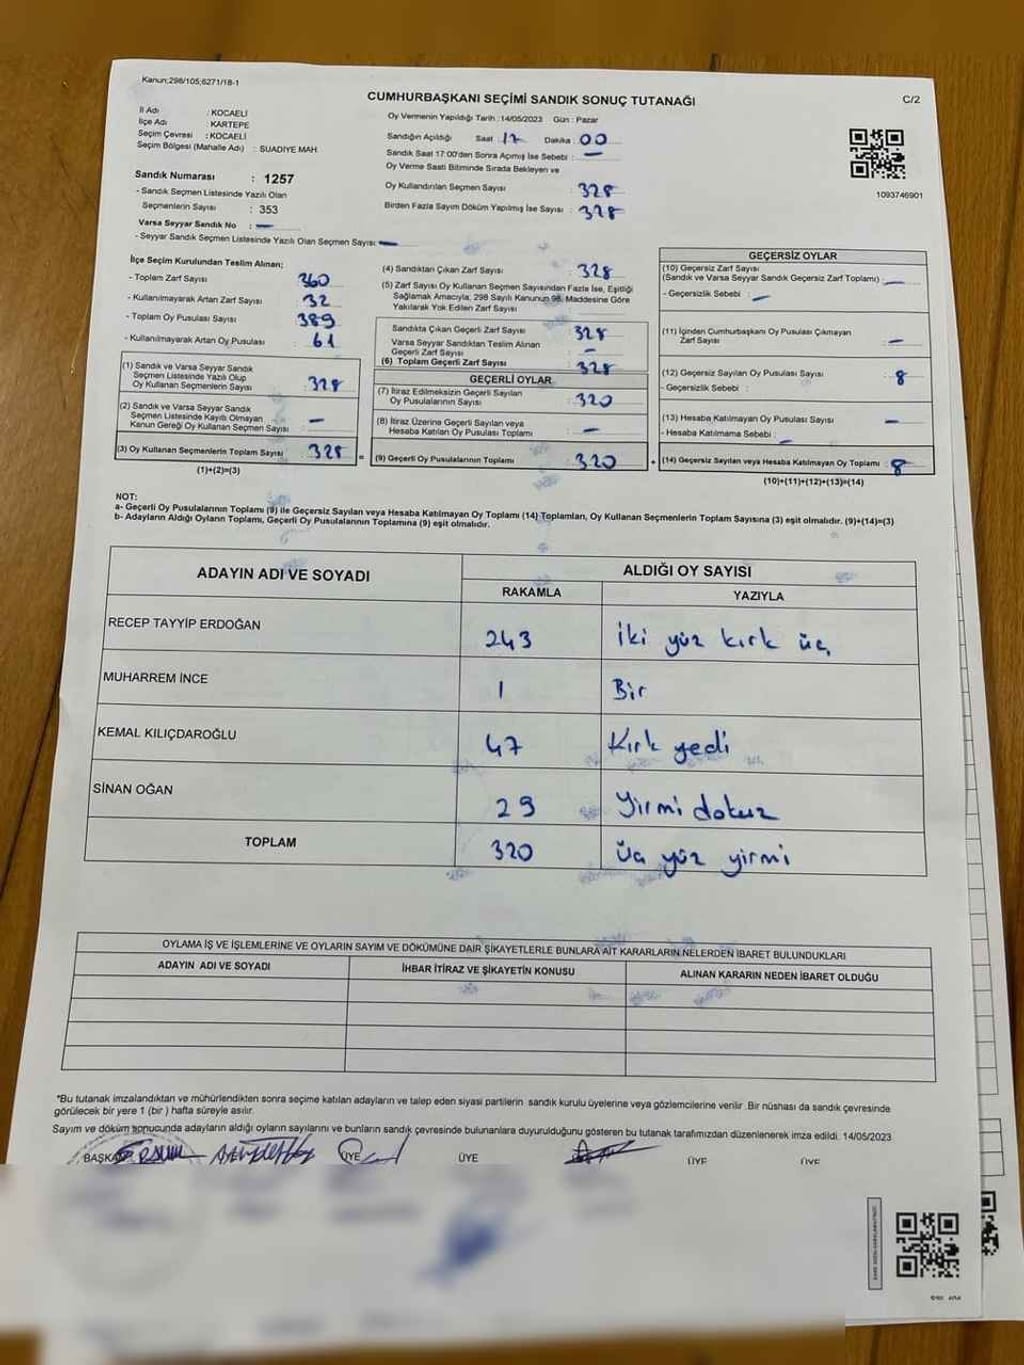 Kanun;298/105;6271/18-1
CUMHURBAŞKANI SEÇİMİ SANDIK SONUÇ TUTANAĞI
C/2
İl Adı : KOCAELİ
İlçe Adı : KARTEPE
Seçim Çevresi : KOCAELİ
Seçim Bölgesi (Mahalle Adı) : SUADİYE MAH.
Sandık Numarası : 1257
- Sandık Seçmen Listesinde Yazılı Olan
Seçmenlerin Sayısı : 353
Varsa Seyyar Sandık No : —
- Seyyar Sandık Seçmen Listesinde Yazılı Olan Seçmen Sayısı: —
Oy Vermenin Yapıldığı Tarih :14/05/2023 Gün : Pazar
Sandığın Açıldığı Saat 17 Dakika 00
Sandık Saat 17:00'den Sonra Açımış İse Sebebi : —
Oy Verme Saati Bitiminde Sırada Bekleyen ve
Oy Kullandırılan Seçmen Sayısı : 328
Birden Fazla Sayım Döküm Yapılmış İse Sayısı : 328
1093746901
İlçe Seçim Kurulundan Teslim Alınan;
- Toplam Zarf Sayısı : 360
- Kullanılmayarak Artan Zarf Sayısı : 32
- Toplam Oy Pusulası Sayısı : 389
- Kullanılmayarak Artan Oy Pusulası : 61
(1) Sandık ve Varsa Seyyar Sandık
Seçmen Listesinde Yazılı Olup
Oy Kullanan Seçmenlerin Sayısı : 328
(2) Sandık ve Varsa Seyyar Sandık
Seçmen Listesinde Kayıtlı Olmayan
Kanun Gereği Oy Kullanan Seçmen Sayısı : —
(3) Oy Kullanan Seçmenlerin Toplam Sayısı : 328
(1)+(2)=(3)
(4) Sandıktan Çıkan Zarf Sayısı : 328
(5) Zarf Sayısı Oy Kullanan Seçmen Sayısından Fazla İse, Eşitliği
Sağlamak Amacıyla; 298 Sayılı Kanunun 98. Maddesine Göre
Yakılarak Yok Edilen Zarf Sayısı :
Sandıkta Çıkan Geçerli Zarf Sayısı : 328
Varsa Seyyar Sandıktan Teslim Alınan
Geçerli Zarf Sayısı : —
(6) Toplam Geçerli Zarf Sayısı : 328
GEÇERLİ OYLAR
(7) İtiraz Edilmeksizin Geçerli Sayılan
Oy Pusulalarının Sayısı : 320
(8) İtiraz Üzerine Geçerli Sayılan veya
Hesaba Katılan Oy Pusulası Toplamı : —
= (9) Geçerli Oy Pusulalarının Toplamı : 320
GEÇERSİZ OYLAR
(10) Geçersiz Zarf Sayısı
(Sandık ve Varsa Seyyar Sandık Geçersiz Zarf Toplamı) : —
- Geçersizlik Sebebi : —
(11) İçinden Cumhurbaşkanı Oy Pusulası Çıkmayan
Zarf Sayısı : —
(12) Geçersiz Sayılan Oy Pusulası Sayısı : 8
- Geçersizlik Sebebi :
(13) Hesaba Katılmayan Oy Pusulası Sayısı : —
- Hesaba Katılmama Sebebi : —
+ (14) Geçersiz Sayılan veya Hesaba Katılmayan Oy Toplamı : 8
(10)+(11)+(12)+(13)=(14)
NOT:
a- Geçerli Oy Pusulalarının Toplamı (9) ile Geçersiz Sayılan veya Hesaba Katılmayan Oy Toplamı (14) Toplamları, Oy Kullanan Seçmenlerin Toplam Sayısına (3) eşit olmalıdır. (9)+(14)=(3)
b- Adayların Aldığı Oyların Toplamı, Geçerli Oy Pusulalarının Toplamına (9) eşit olmalıdır.
ADAYIN ADI VE SOYADI ALDIĞI OY SAYISI
RAKAMLA YAZIYLA
RECEP TAYYİP ERDOĞAN 243 iki yüz kırk üç
MUHARREM İNCE 1 Bir
KEMAL KILIÇDAROĞLU 47 Kırk yedi
SİNAN OĞAN 29 Yirmi dokuz
TOPLAM 320 Üç yüz yirmi
OYLAMA İŞ VE İŞLEMLERİNE VE OYLARIN SAYIM VE DÖKÜMÜNE DAİR ŞİKAYETLERLE BUNLARA AİT KARARLARIN NELERDEN İBARET BULUNDUKLARI
ADAYIN ADI VE SOYADI İHBAR İTİRAZ VE ŞİKAYETİN KONUSU ALINAN KARARIN NEDEN İBARET OLDUĞU
*Bu tutanak imzalandıktan ve mühürlendikten sonra seçime katılan adayların ve talep eden siyasi partilerin sandık kurulu üyelerine veya gözlemcilerine verilir. Bir nüshası da sandık çevresinde
görülecek bir yere 1 (bir) hafta süreyle asılır.
Sayım ve döküm sonucunda adayların aldığı oyların sayılarını ve bunların sandık çevresinde bulunanlara duyurulduğunu gösteren bu tutanak tarafımızdan düzenlenerek imza edildi. 14/05/2023
BAŞKAN ÜYE ÜYE ÜYE ÜYE